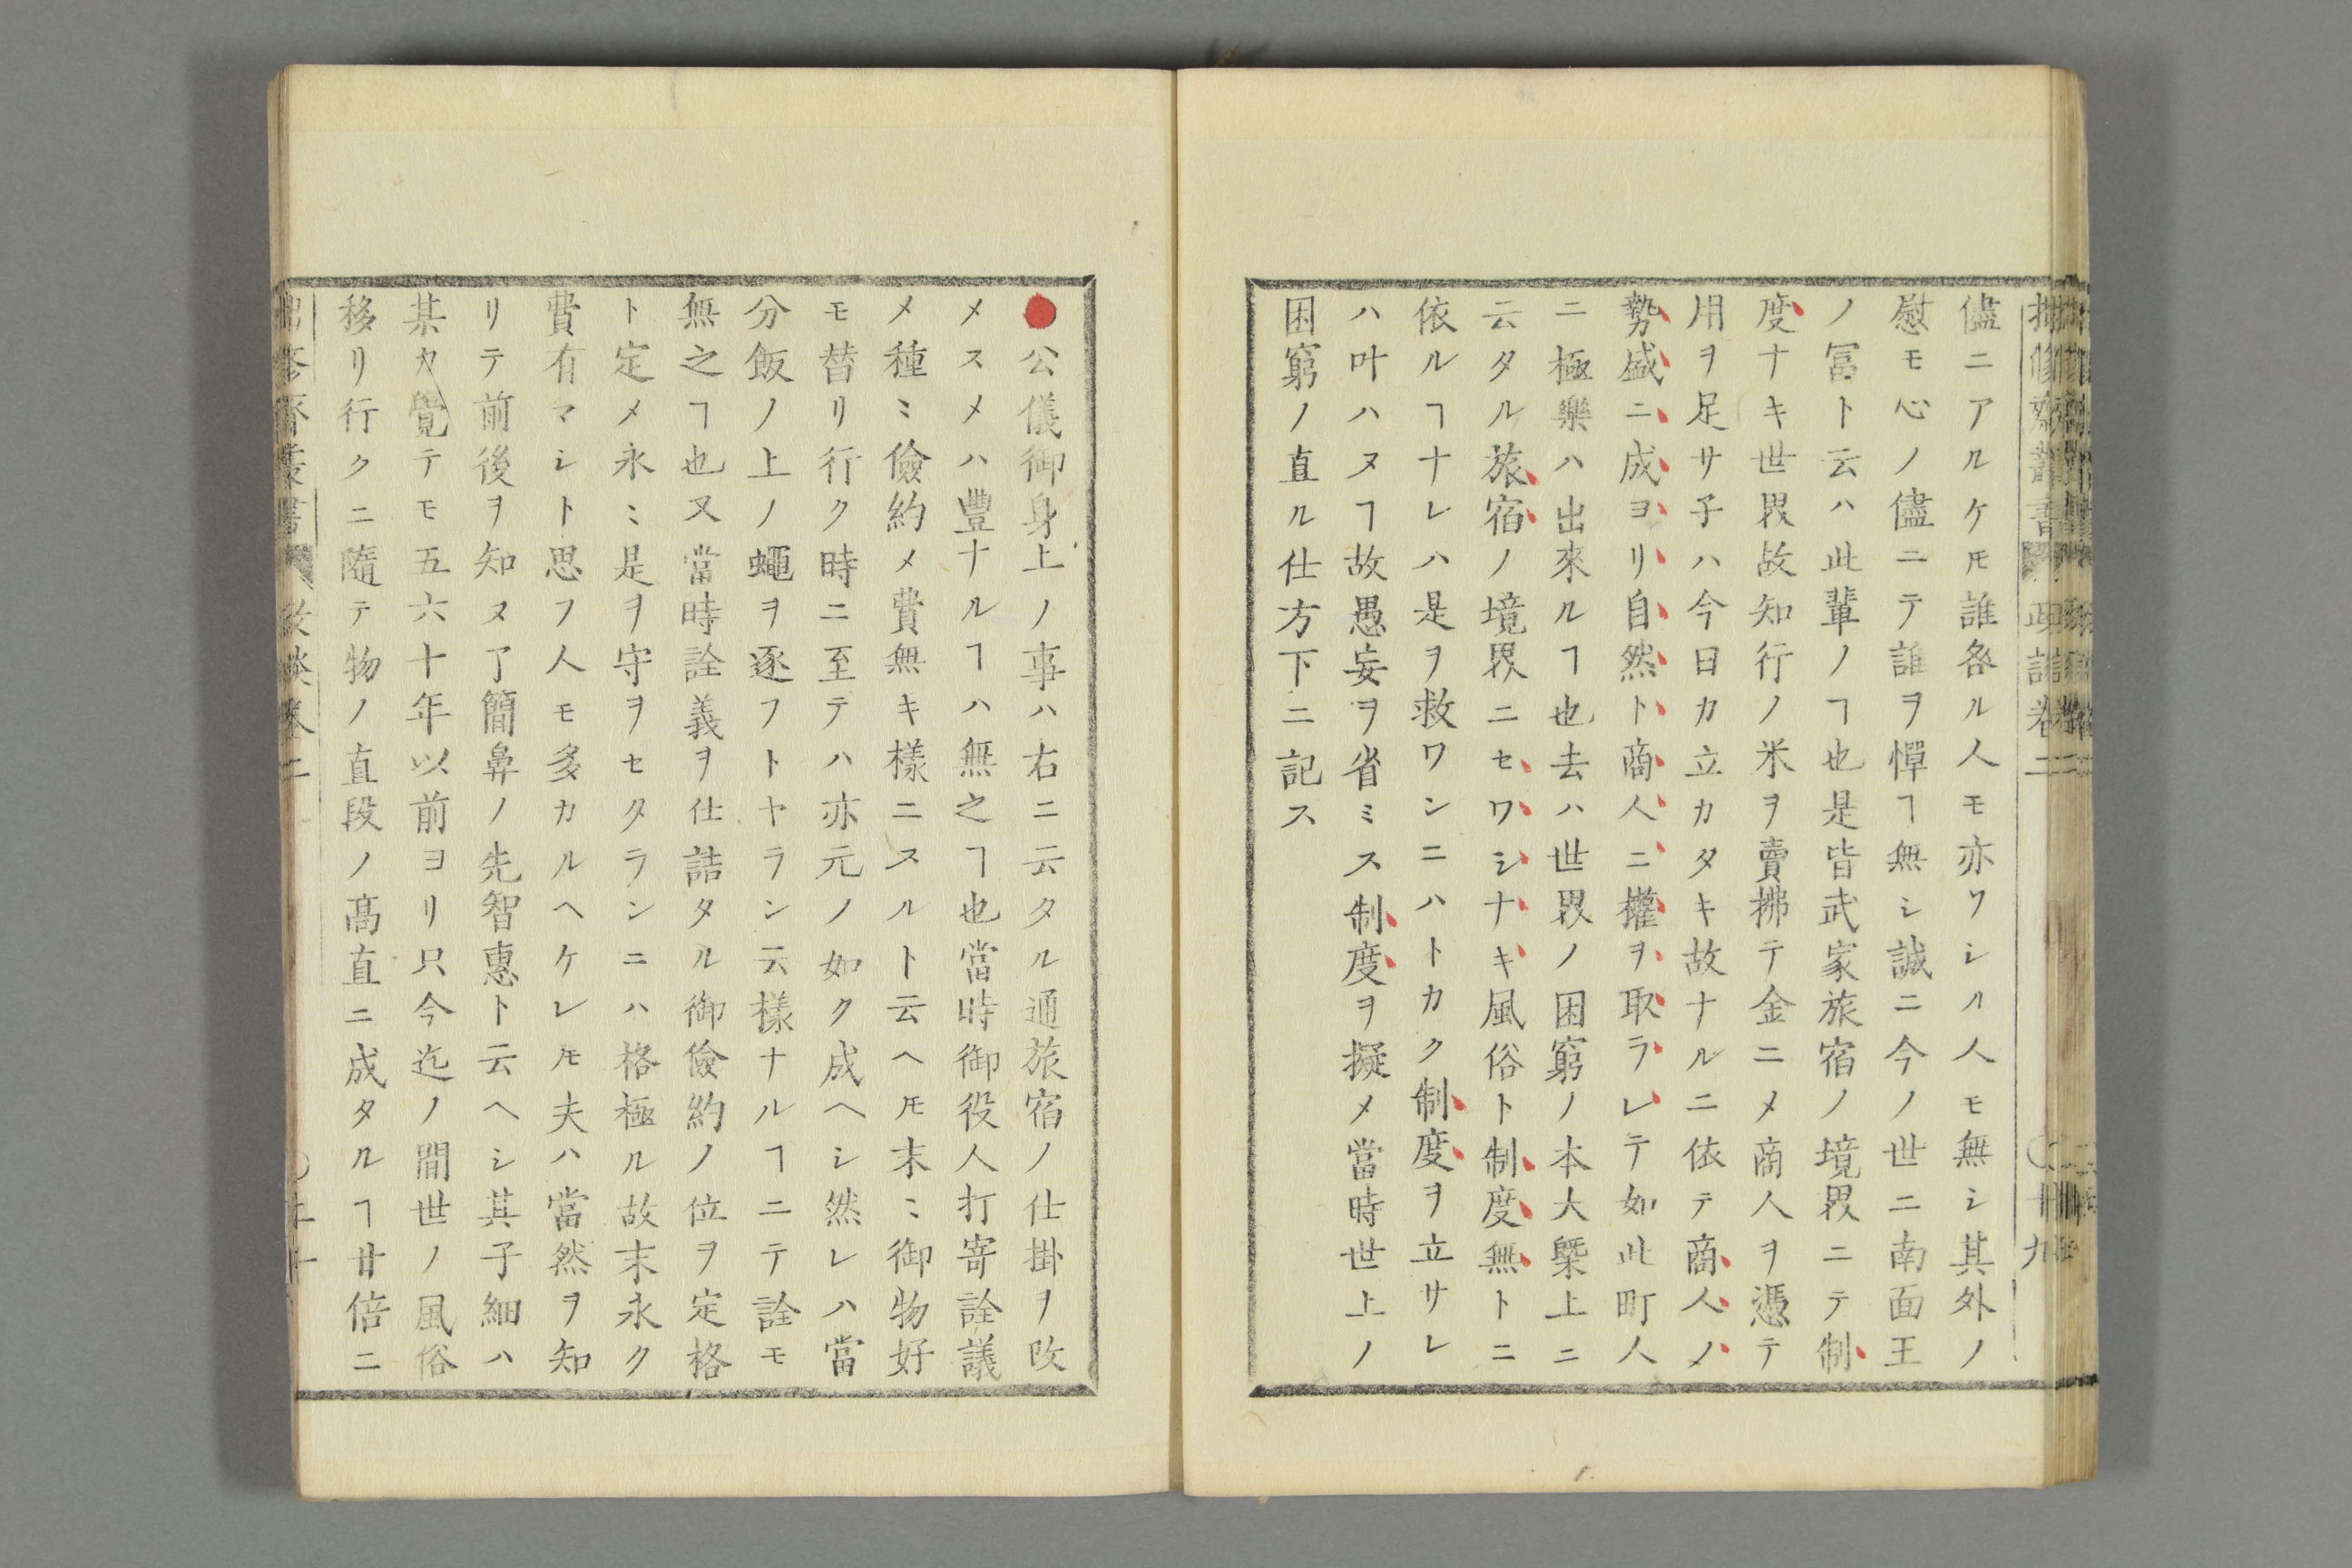 儘ニアルケ𪜈誰咎ル人モ亦ワシル人モ無シ其外ノ
慰モ心ノ儘ニテ誰ヲ憚ヿ無シ誠ニ今ノ世ニ南面王
ノ冨ト云ハ此輩ノヿ也是皆武家旅宿ノ境界ニテ制
度ナキ世界故知行ノ米ヲ賣拂テ金ニメ商人ヲ憑テ
用ヲ足サ子ハ今日カ立カタキ故ナルニ依テ商人ノ
勢盛ニ成ヨリ自然ト商人ニ權ヲ取ラレテ如此町人
ニ極樂ハ出來ルヿ也去ハ世界ノ困窮ノ本大槩上ニ
云タル旅宿ノ境界ニセワシナキ風俗ト制度無トニ
依ルヿナレハ是ヲ救ワンニハトカク制度ヲ立サレ
ハ叶ハヌヿ故愚妄ヲ省ミス制度ヲ擬メ當時世上ノ
困窮ノ直ル仕方下ニ記ス
公儀御身上ノ事ハ右ニ云タル通旅宿ノ仕掛ヲ改
メスメハ豐ナルヿハ無之ヿ也當時御役人打寄詮議
メ種〻儉約メ費無キ樣ニスルト云ヘ𪜈末〻御物好
モ替リ行ク時ニ至テハ亦元ノ如ク成ヘシ然レハ當
分飯ノ上ノ蠅ヲ逐フトヤラン云樣ナルヿニテ詮モ
無之ヿ也又當時詮義ヲ仕詰タル御儉約ノ位ヲ定格
ト定メ永〻是ヲ守ヲセタランニハ格極ル故末永ク
費有マシト思フ人モ多カルヘケレ𪜈夫ハ當然ヲ知
リテ前後ヲ知ヌ了簡鼻ノ先智惠ト云ヘシ其子細ハ
某カ覺テモ五六十年以前ヨリ只今迄ノ間世ノ風俗
移リ行クニ隨テ物ノ直段ノ髙直ニ成タルヿ廿倍ニ